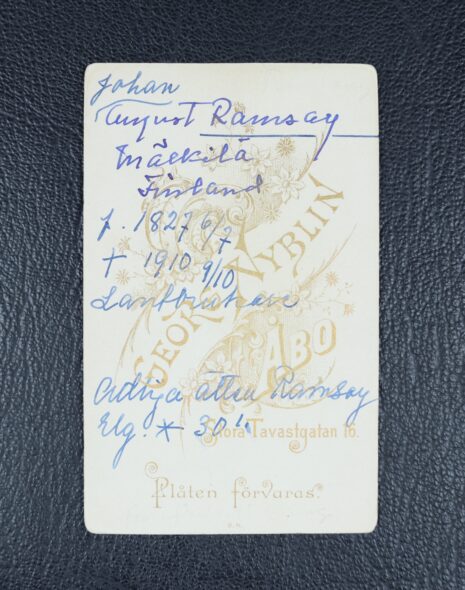 Johan
August Ramsay
Mäekilä
Finland
f. 1827 6/7
† 1910 9/10
Lantbrukare
Adliga ätten Ramsay
Elg. * 30
GEORG NYBLIN
ÅBO
Stora Tavastgatan 16.
Plåten förvaras.